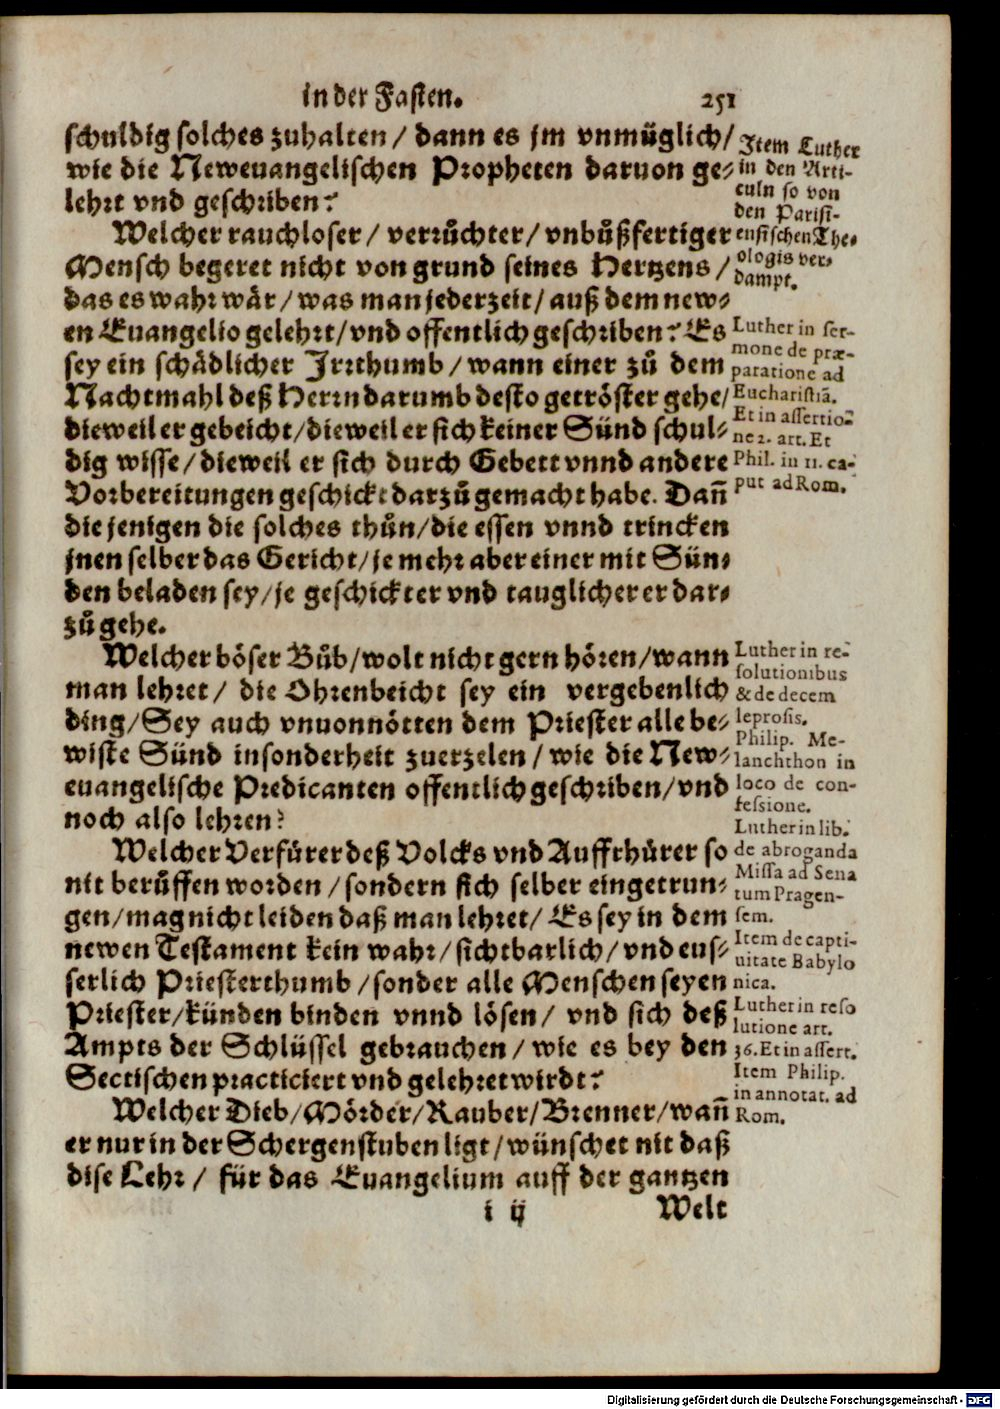 in der Fasten. 251
schuldig solches zuhalten / dann es jm vnmüglich /
wie die Neweuangelischen Propheten daruon ge⸗
lehrt vnd geschriben?
Welcher rauchloser / verrůchter / vnbůßfertiger
Mensch begeret nicht von grund seines Hertzens /
das es wahr wär / was man jederzeit / auß dem new⸗
en Euangelio gelehrt / vnd offentlich geschriben? Es
sey ein schädlicher Irrthumb / wann einer zů dem
Nachtmahl deß Herrn darumb desto getröster gehe /
dieweil er gebeicht / dieweil er sich keiner Sünd schul⸗
dig wisse / dieweil er sich durch Gebett vnnd andere
Vorbereitungen geschickt darzů gemacht habe. Dañ
die jenigen die solches thůn / die essen vnnd trincken
jnen selber das Gericht / je mehr aber einer mit Sün⸗
den beladen sey / je geschickter vnd tauglicher er dar⸗
zů gehe.
Welcher böser Bůb / wolt nicht gern hören / wann
man lehret / die Ohrenbeicht sey ein vergebenlich
ding / Sey auch vnuonnötten dem Priester alle be⸗
wiste Sünd insonderheit zuerzelen / wie die New⸗
euangelische Predicanten offentlich geschriben / vnd
noch also lehren?
Welcher Verfürer deß Volcks vnd Auffrhürer so
nit berůffen worden / sondern sich selber eingetrun⸗
gen / mag nicht leiden daß man lehret / Es sey in dem
newen Testament kein wahr / sichtbarlich / vnd eus⸗
serlich Priesterthumb / sonder alle Menschen seyen
Priester / künden binden vnnd lösen / vnd sich deß
Ampts der Schlüssel gebrauchen / wie es bey den
Sectischen practiciert vnd gelehret wirdt?
Welcher Dieb / Mörder / Rauber / Brenner / wañ
er nur in der Schergenstuben ligt / wünschet nit daß
dise Lehr / für das Euangelium auff der gantzen
i ij Welt
Item Luther
in den Arti-
culn so von
den Parisi-
ensischen The⸗
ologis ver⸗
dampt.
Luther in ser-
mone de præ-
paratione ad
Eucharistiā.
Et in assertio-
ne 2. art. Et
Phil. in 11. ca-
put ad Rom.
Luther in re-
solutionibus
& de decem
leprosis.
Philip. Me-
lanchthon in
loco de con-
fessione.
Luther in lib.
de abroganda
Missa ad Sena
tum Pragen-
sem.
Item de capti-
uitate Babylo
nica.
Luther in reso
lutione art.
36. Et in assert.
Item Philip.
in annotat. ad
Rom.
Digitalisierung gefördert durch die Deutsche Forschungsgemeinschaft - DFG